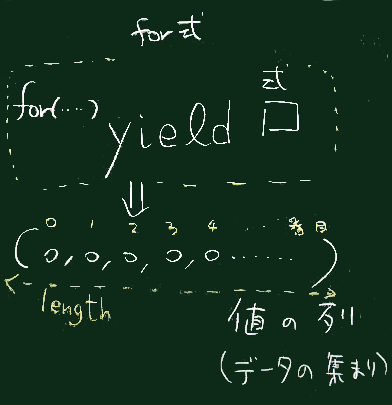 for式
式
for(....) yield □
⇓
0 1 2 3 4 ... 番目
(0, 0, 0, 0, 0 ......)
length
値の列
(データの集まり)